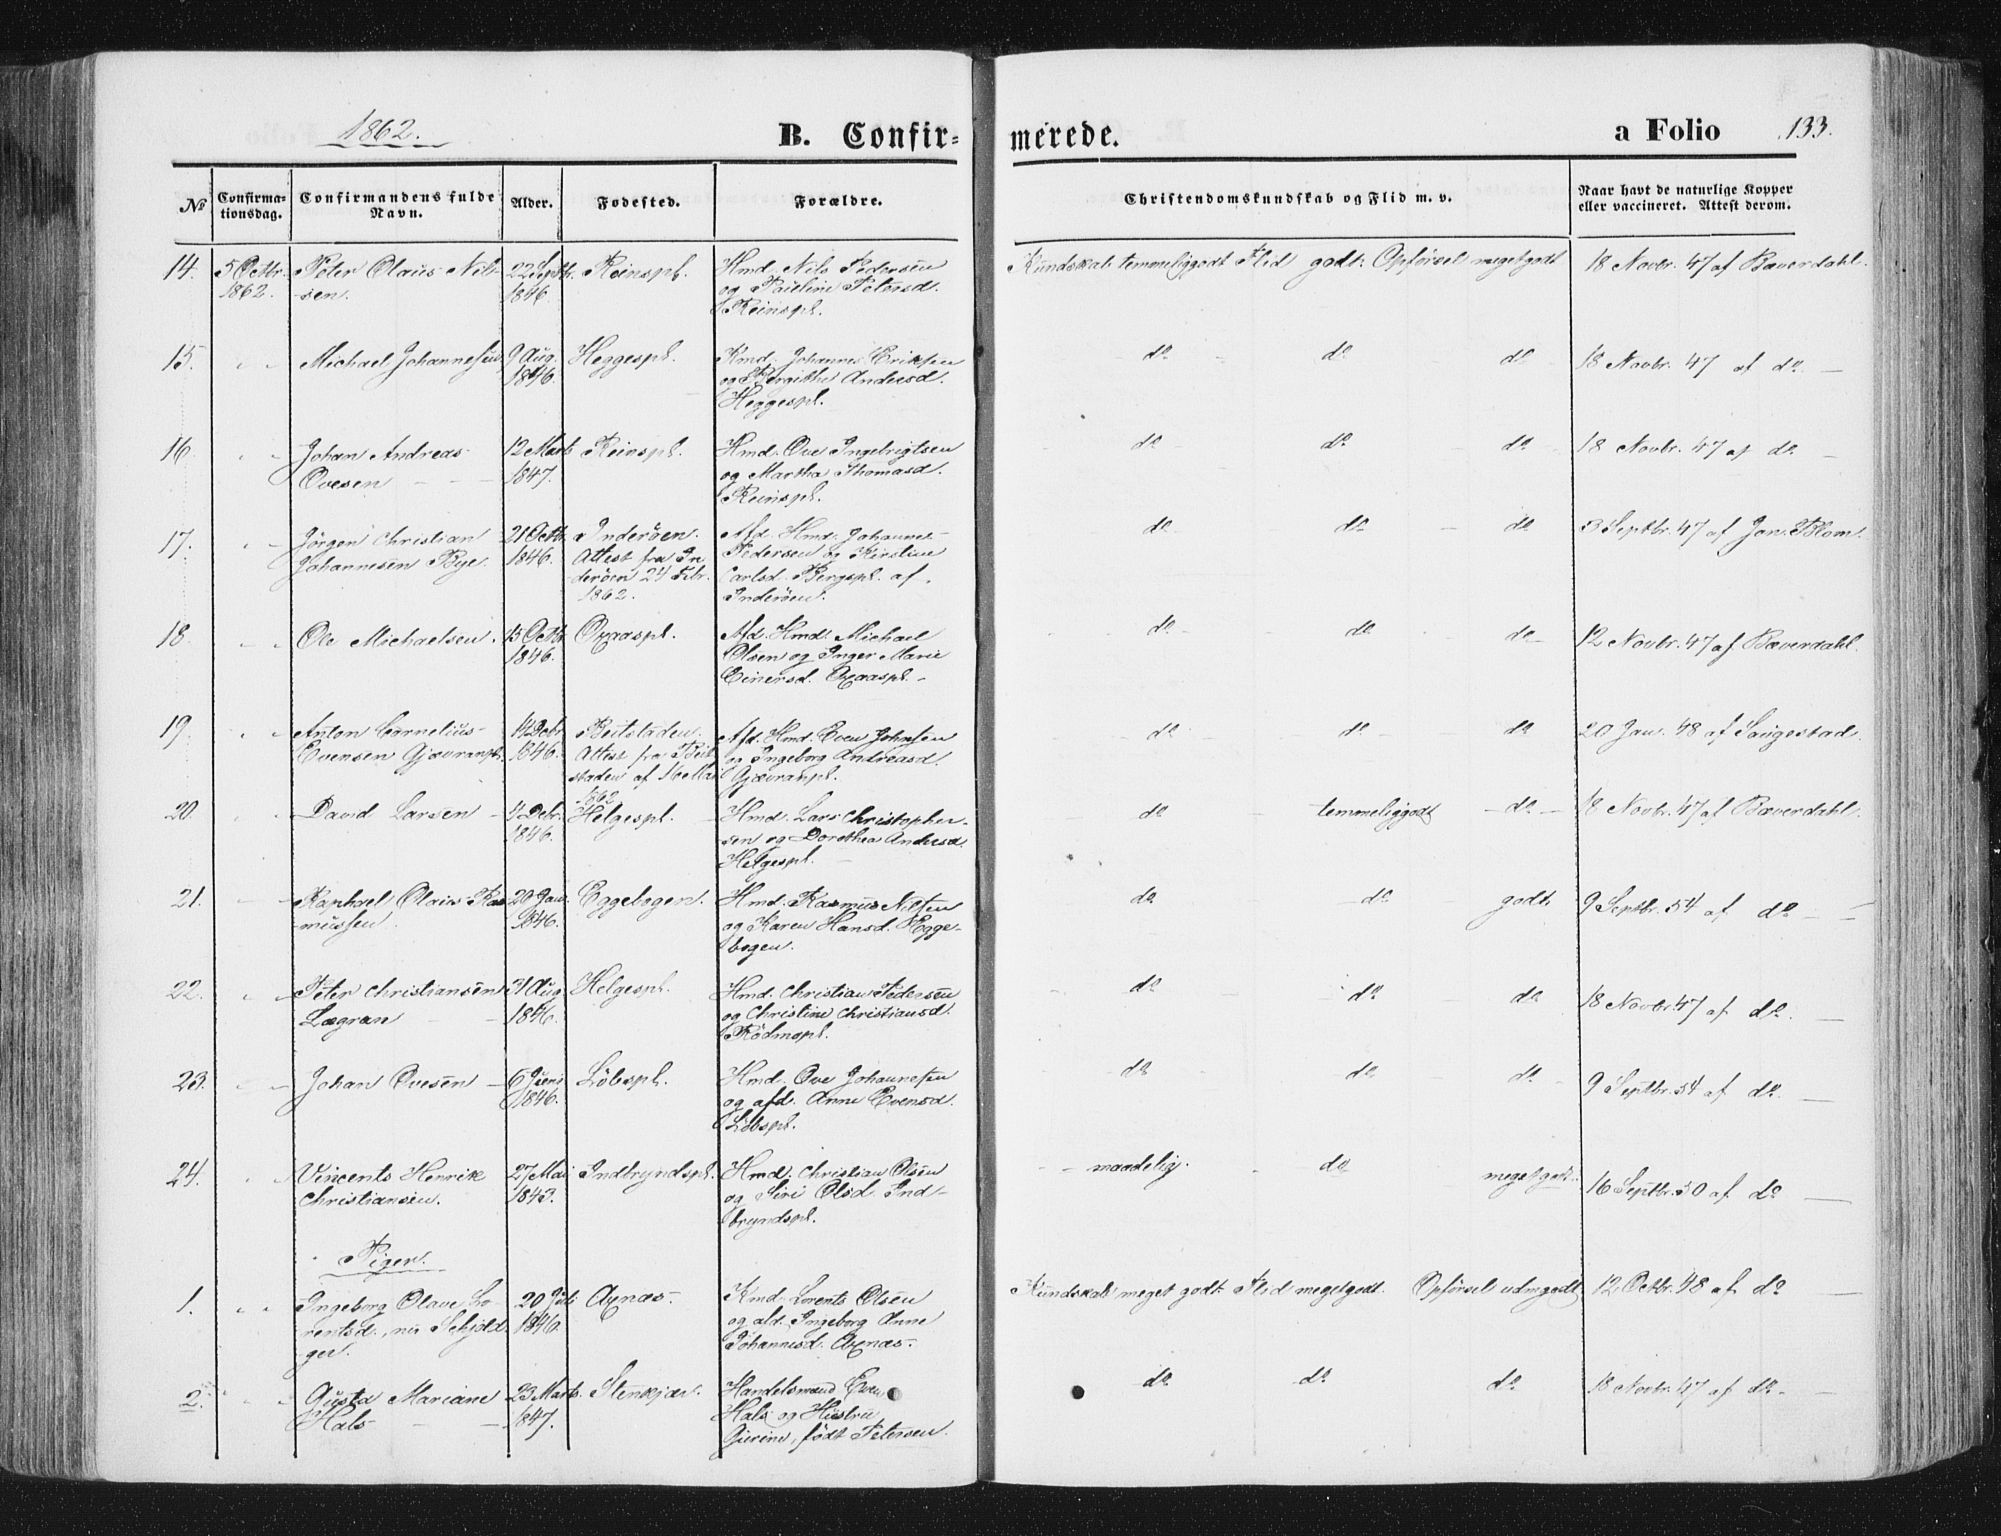 1862.
B. Confirmerede.
a Folio 133.
No
Confirmationsdag.
Confirmandens fulde Navn.
Alder.
Fødested.
Forældre.
Christendomskundskab og Flid m. v.
Naar havt de naturlige Kopper eller vaccineret. Attest derom.
14. 5 Octbr. Peter Olaus Nil- 22 Septbr. Reinspl. Hmd. Nils Pedersen Kundskab temmeliggodt Flid godt. Opførsel megetgodt 18 Novbr. 47 af Bæverdahl.
1862. -sen. 1846. og Pauline Petersd.
Reinspl.
15. " " Michael Johannesen 9 Aug. Heggespl. Hmd. Johannes Eriksen do do do 18 Novbr. 47 af do
1846. og Bergitthe Andersd.
Heggespl.
16. " " Johan Andreas 12 Marts Reinspl. Hmd. Ove Ingebrigtsen do do do 18 Novbr. 47 af do
Ovesen 1847. og Martha Thomasd.
Reinspl.
17. " " Jörgen Christian 21 Octbr. Inderöen. Afd. Hmd. Johannes do do do 3 Septbr. 47 af Jan Blom.
Johannesen Bye. 1846. Attest fra In- Pedersen og Kirstine
deröen 24 Febr. Carlsd. Bergspl. af
1862. Inderöen.
18. " " Ole Michaelsen. 15 Octbr. Oxaaspl. Afd. Hmd. Michael do do do 12 Novbr. 47 af Bæverdahl.
1846. Olsen og Inger Marie
Einersd. Oxaaspl.
19. " " Anton Cornelius 14 Debr. Beitstaden. Afd. Hmd. Even Johnsen do do do 20 Jan. 48 af Saugestad.
Evensen Gjævranpl. 1846. Attest fra Beit- og Ingeborg Andreasd.
staden af 16 Mai Gjævranpl.
1862
20. " " David Larsen 4 Debr. Helgespl. Hmd. Lars Christopher- do temmeliggodt do 18 Novbr. 47 af Bæverdahl.
1846. sen og Dorothea Andersd.
Helgespl.
21. " " Raphael Olaus Ras- 20 Jan. Eggebogen. Hmd. Rasmus Nilsen do do godt. 9 Septbr. 54 af do
mussen 1846. og Karen Hansd. Egge-
bogen.
22. " " Peter Christiansen 31 Aug. Helgespl. Hmd. Christian Pedersen do do do 18 Novbr. 47 af do
Lægran 1846. og Christine Christiansd.
Rödmspl.
23. " " Johan Ovesen 6 Juni Löbspl. Hmd. Ove Johannesen do do do 9 Septbr. 54 af do
1846. og afd. Anne Evensd.
Löbspl.
24. " " Vincents Henrik 27 Mai Indbryndspl. Hmd. Christian Olsen maadelig. do megetgodt. 16 Septbr. 50 af do
Christiansen. 1843. og Siri Olsd. Ind-
bryndspl.
Piger.
1. " " Ingeborg Olave Lo- 20 Juli Axnæs. Kmd. Lorents Olsen Kundskab meget godt Flid megetgodt. Opførsel udmgodt 12 Octbr. 48 af do
rentsd. Schjöld- 1846. Ingeborg Anne
ger. Johannesd. Axnæs.
2. " " Gusta Mariane 23 Marts Stenkjær. Handelsmand Even do do do 18 Novbr. 47 af do
Hals 1847. Hals og Hustru
Gurine, født Petersen.